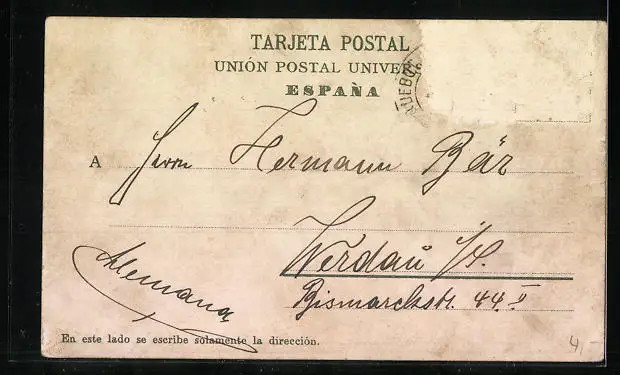 TARJETA POSTAL
UNIÓN POSTAL UNIVERS
ESPAÑA
A Herrn Hermann Bär
Werdau i/S.
Bismarckstr. 44 II
Alemania
En este lado se escribe solamente la dirección.
4,-